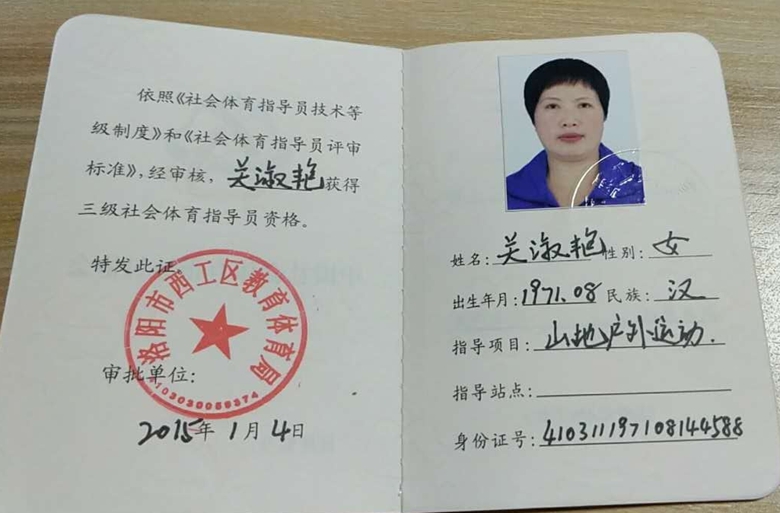 依照《社会体育指导员技术等
级制度》和《社会体育指导员评审
标准》,经审核,关淑艳获得
三级社会体育指导员资格。
特发此证。
洛阳市西工区教育体育局
审批单位:
2015年1月4日
姓名:关淑艳 性别:女
出生年月:1971.08 民族:汉
指导项目:山地户外运动.
指导站点:
身份证号:410311197108144588